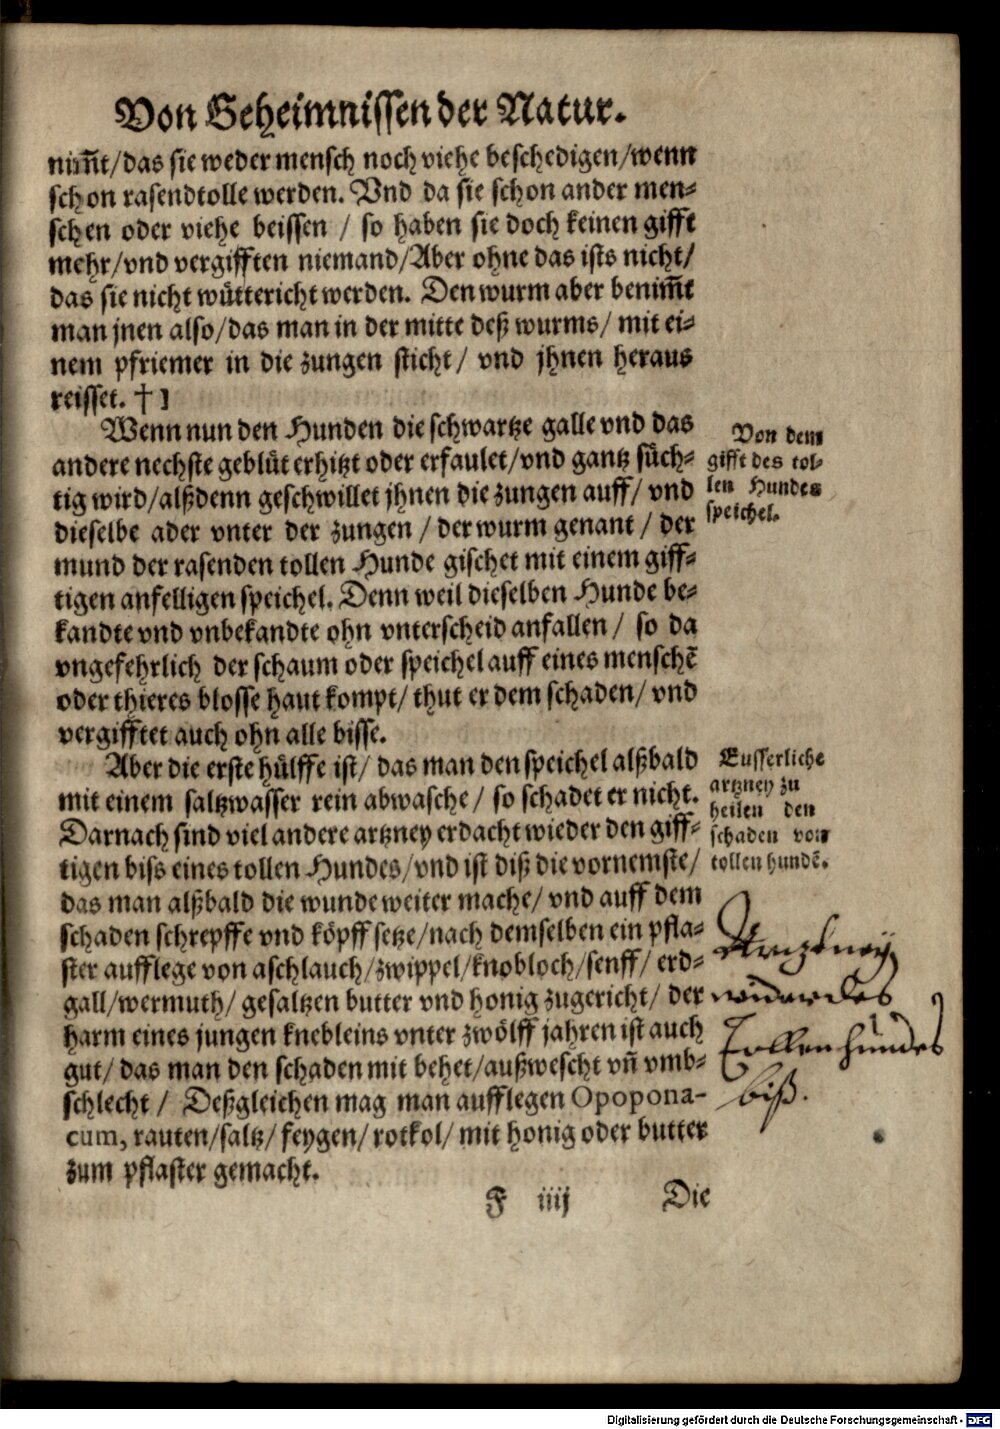 Von Geheimnissen der Natur.
nim̃t/das sie weder mensch noch viehe beschedigen/wenn
schon rasendtolle werden. Vnd da sie schon ander men⸗
schen oder viehe beissen / so haben sie doch keinen gifft
mehr/vnd vergifften niemand/Aber ohne das ists nicht/
das sie nicht wüttericht werden. Den wurm aber benim̃t
man jnen also/das man in der mitte deß wurms/ mit ei⸗
nem pfriemer in die zungen sticht/ vnd jhnen heraus
reisset. †]
Wenn nun den Hunden die schwartze galle vnd das
andere nechste geblüt erhitzt oder erfaulet/vnd gantz süch⸗
tig wird/alßdenn geschwillet jhnen die zungen auff/ vnd
dieselbe ader vnter der zungen / der wurm genant / der
mund der rasenden tollen Hunde gischet mit einem giff⸗
tigen anfelligen speichel. Denn weil dieselben Hunde be⸗
kandte vnd vnbekandte ohn vnterscheid anfallen / so da
vngefehrlich der schaum oder speichel auff eines menschẽ
oder thieres blosse haut kompt/ thut er dem schaden/ vnd
vergifftet auch ohn alle bisse.
Von dem
gifft des tol⸗
len Hundes
speichel.
Aber die erste hülffe ist/ das man den speichel alßbald
mit einem saltzwasser rein abwasche/ so schadet er nicht.
Darnach sind viel andere artzney erdacht wieder den giff⸗
tigen biss eines tollen Hundes/vnd ist diß die vornemste/
das man alßbald die wunde weiter mache/ vnd auff dem
schaden schrepffe vnd köpff setze/nach demselben ein pfla⸗
ster aufflege von aschlauch/zwippel/knobloch/senff/ erd⸗
gall/wermuth/ gesaltzen butter vnd honig zugericht/ der
harm eines jungen knebleins vnter zwölff jahren ist auch
gut/ das man den schaden mit behet/außwescht vñ vmb⸗
schlecht / Deßgleichen mag man aufflegen Opopona-
cum, rauten/saltz/ feygen/ rotkol/ mit honig oder butter
zum pflaster gemacht.
Eusserliche
artzney zu
heilen den
schaden von
tollen hundẽ.
Artzney
wider des
Tollen hundes
biß.
F iiij Die
Digitalisierung gefördert durch die Deutsche Forschungsgemeinschaft - DFG